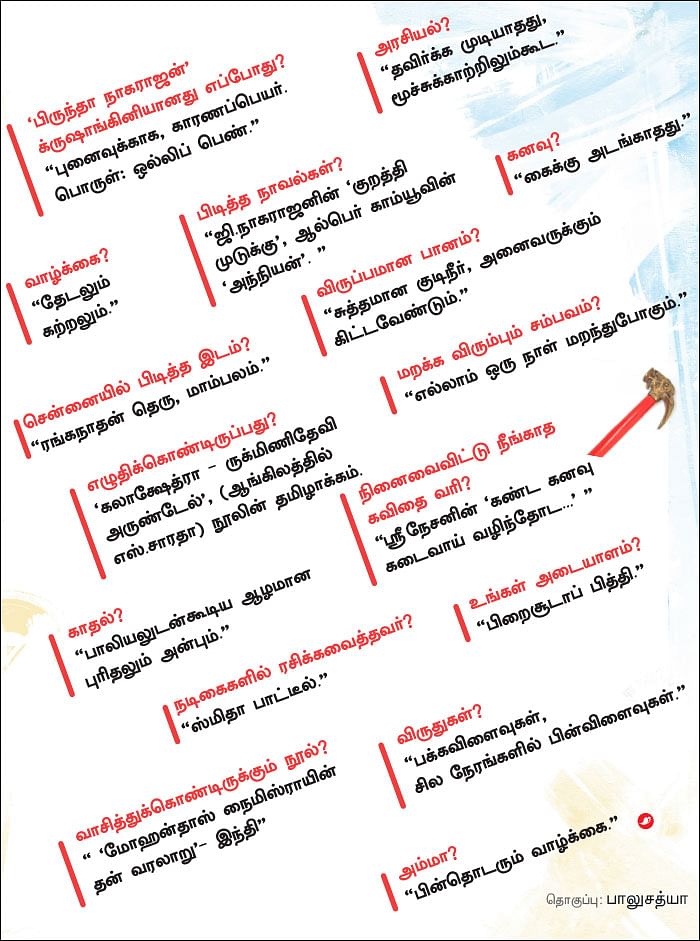 ‘பிருந்தா நாகராஜன்’
க்ருஷாங்கினியானது எப்போது?
“புனைவுக்காக, காரணப்பெயர்.
பொருள்: ஒல்லிப் பெண்.”
அரசியல்?
“தவிர்க்க முடியாதது,
மூச்சுக்காற்றிலும்கூட.”
பிடித்த நாவல்கள்?
“ஜி.நாகராஜனின் ‘குறத்தி
முடுக்கு’, ஆல்பெர் காம்யூவின்
‘அந்நியன்’. ”
கனவு?
“கைக்கு அடங்காதது.”
வாழ்க்கை?
“தேடலும்
கற்றலும்.”
விருப்பமான பானம்?
“சுத்தமான குடிநீர், அனைவருக்கும்
கிட்டவேண்டும்.”
மறக்க விரும்பும் சம்பவம்?
“எல்லாம் ஒரு நாள் மறந்துபோகும்.”
சென்னையில் பிடித்த இடம்?
“ரங்கநாதன் தெரு, மாம்பலம்.”
எழுதிக்கொண்டிருப்பது?
‘கலாக்ஷேத்ரா – ருக்மிணிதேவி
அருண்டேல்’, (ஆங்கிலத்தில்
எஸ்.சாரதா) நூலின் தமிழாக்கம்.
நினைவைவிட்டு நீங்காத
கவிதை வரி?
“ஸ்ரீநேசனின் ‘கண்ட கனவு
கடைவாய் வழிந்தோட...’ ”
காதல்?
“பாலியலுடன்கூடிய ஆழமான
புரிதலும் அன்பும்.”
உங்கள் அடையாளம்?
“பிறைசூடாப் பித்தி.”
நடிகைகளில் ரசிக்கவைத்தவர்?
“ஸ்மிதா பாட்டீல்.”
விருதுகள்?
“பக்கவிளைவுகள்,
சில நேரங்களில் பின்விளைவுகள்.”
வாசித்துக்கொண்டிருக்கும் நூல்?
“ ‘மோஹன்தாஸ் நைமிஸ்ராயின்
தன் வரலாறு’– இந்தி”
அம்மா?
“பின்தொடரும் வாழ்க்கை.”
தொகுப்பு: பாலுசத்யா